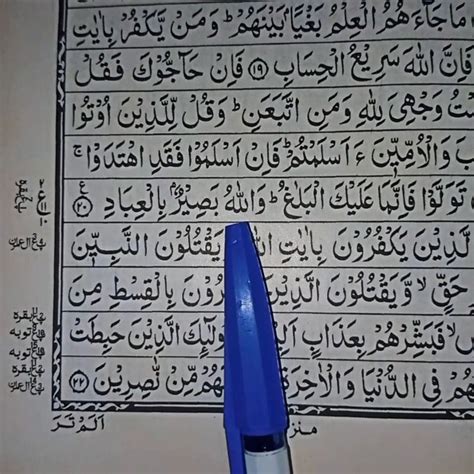 مَا جَآءَهُمُ الْعِلْمُ بَغْيًاۢ بَيْنَهُمْ ؕ وَمَنْ يَّكْفُرْ بِاٰيٰتِ
فَاِنَّ اللّٰهَ سَرِيْعُ الْحِسَابِ ﴿۱۹﴾ فَاِنْ حَآجُّوْكَ فَقُلْ
وَجْهِيَ لِلّٰهِ وَمَنِ اتَّبَعَنِ ؕ وَقُلْ لِّلَّذِيْنَ اُوْتُوا
وَالْاُمِّيّٖنَ ءَاَسْلَمْتُمْ ؕ فَاِنْ اَسْلَمُوْا فَقَدِ اهْتَدَوْا ۚ
تَوَلَّوْا فَاِنَّمَا عَلَيْكَ الْبَلٰغُ ؕ وَاللّٰهُ بَصِيْرٌۢ بِالْعِبَادِ ﴿۲۰﴾
الَّذِيْنَ يَكْفُرُوْنَ بِاٰيٰتِ يَقْتُلُوْنَ النَّبِيّٖنَ
حَقٍّ ۙ وَّيَقْتُلُوْنَ الَّذِيْنَ بِالْقِسْطِ مِنَ
فَبَشِّرْهُمْ بِعَذَابٍ الَّذِيْنَ حَبِطَتْ
فِي الدُّنْيَا وَالْاٰخِرَةِ مِّنْ نّٰصِرِيْنَ ﴿۲۲﴾
اَلَمْ تَرَ